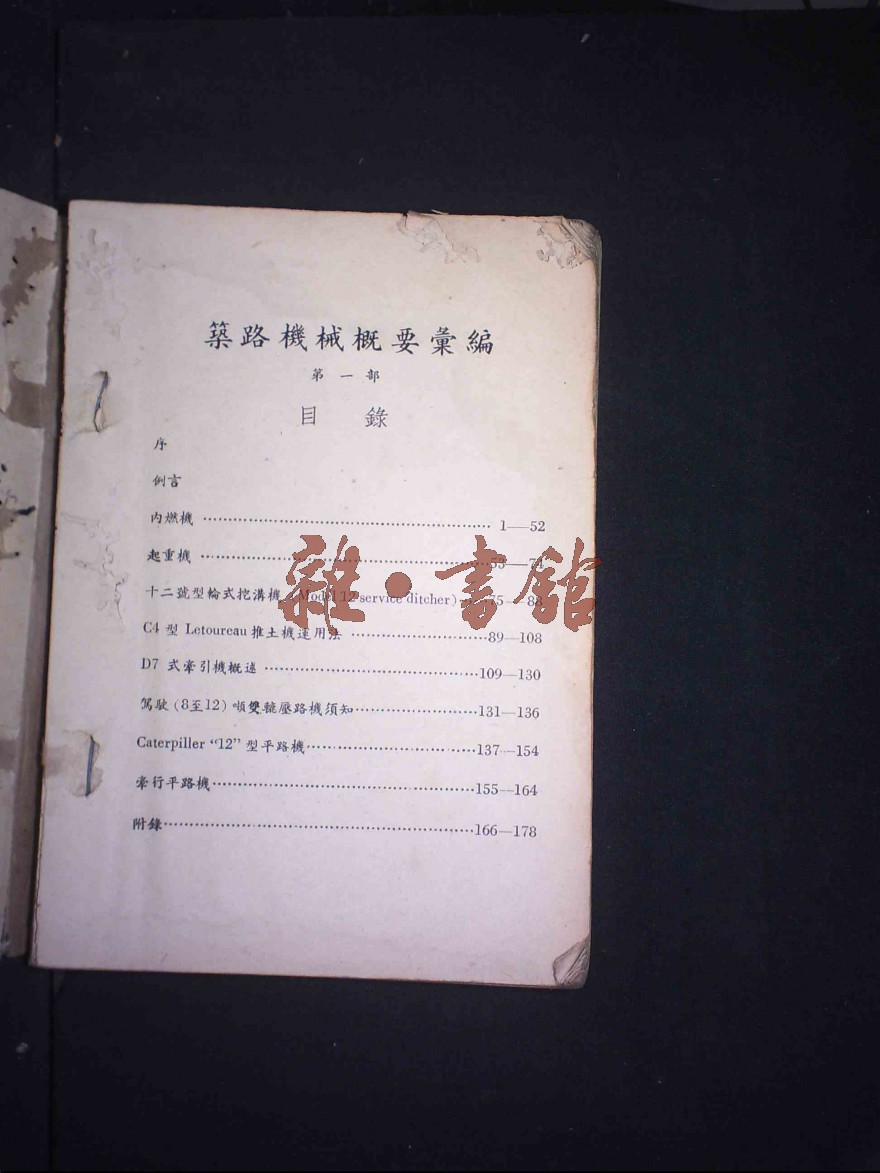 築路機械概要彙編
第一部
目錄
序
例言
內燃機 1—52
起重機 53—74
十二號型輪式挖溝機 (Model 12 service ditcher) 75—88
C4 型 Letoureau 推土機運用法 89—108
D7 式牽引機概述 109—130
駕駛(8至12)噸雙轆壓路機須知 131—136
Caterpiller “12” 型平路機 137—154
牽行平路機 155—164
附錄 166—178
雜·書館